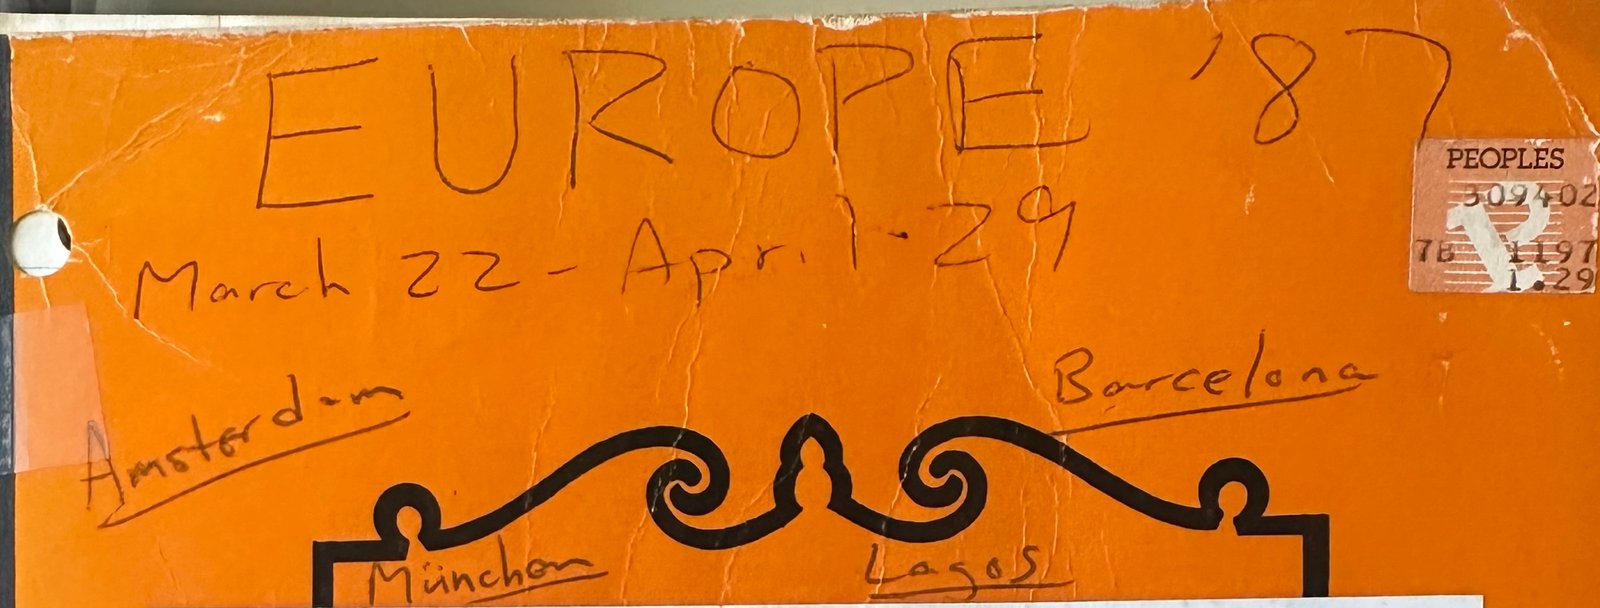 EUROPE '87
PEOPLES
309402
7B 1197
1.29
March 22 - April 29
Amsterdam
Barcelona
München
Lagos